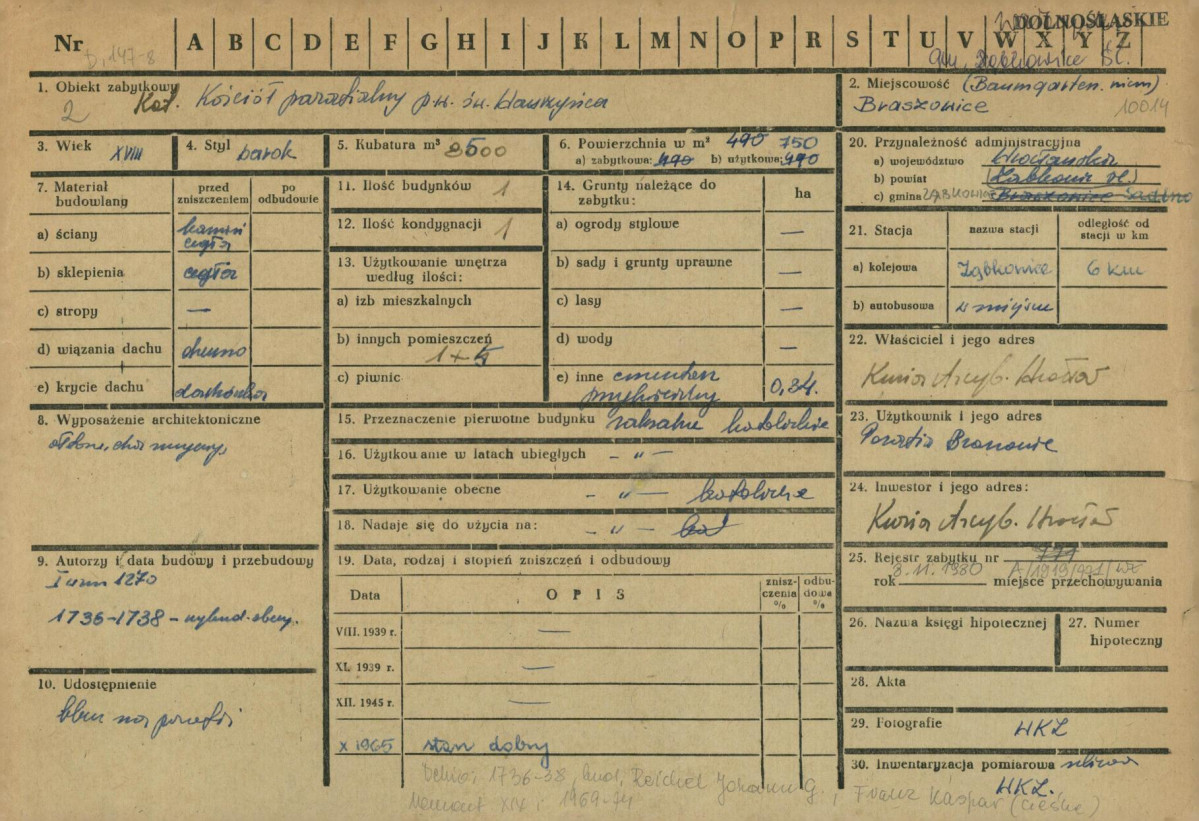 DOLNOŚLĄSKIE
Nr D, 147-8 A B C D E F G H I J K L M N O P R S T U V W X Y Z
gm. Ząbkowice Śl.
1. Obiekt zabytkowy
2 Kat. Kościół parafialny p.w. św. Wawrzyńca
2. Miejscowość (Baumgarten. niem)
Braszowice 10014
3. Wiek XVIII
4. Styl barok
5. Kubatura m³ 8500
6. Powierzchnia w m² 490 750
a) zabytkowa: 490 b) użytkowa: 490
20. Przynależność administracyjna
a) województwo wrocławskie
b) powiat (Ząbkowice Śl.)
c) gmina ZĄBKOWICE Braszowice Sadlno
7. Materiał budowlany
przed zniszczeniem
po odbudowie
a) ściany kamień cegła
b) sklepienia cegła
c) stropy —
d) wiązania dachu drewno
e) krycie dachu dachówka
11. Ilość budynków 1
12. Ilość kondygnacji 1
13. Użytkowanie wnętrza według ilości:
a) izb mieszkalnych
b) innych pomieszczeń
c) piwnic
14. Grunty należące do zabytku:
ha
a) ogrody stylowe —
b) sady i grunty uprawne —
c) lasy —
d) wody —
e) inne cmentarz przykościelny 0,34.
21. Stacja
nazwa stacji
odległość od stacji w km
a) kolejowa Ząbkowice 6 km
b) autobusowa w miejscu
22. Właściciel i jego adres
Kuria Arcyb. Wrocław
8. Wyposażenie architektoniczne
ołtarze, chór muzyczny
15. Przeznaczenie pierwotne budynku sakralne katolickie
16. Użytkowanie w latach ubiegłych - „ -
17. Użytkowanie obecne - „ - katolickie
18. Nadaje się do użycia na: - „ - kat
23. Użytkownik i jego adres
Parafia Braszowice
24. Inwestor i jego adres:
Kuria Arcyb. Wrocław
9. Autorzy i data budowy i przebudowy
I wzm 1270
1736-1738 - wybud. obecny.
19. Data, rodzaj i stopień zniszczeń i odbudowy
Data
OPIS
zniszczenia %
odbudowa %
VIII. 1939 r. —
XI. 1939 r. —
XII. 1945 r. —
X 1965 stan dobry
25. Rejestr zabytku nr 771
A/1919/771/WŁ
rok 3.11.1980 miejsce przechowywania
26. Nazwa księgi hipotecznej
27. Numer hipoteczny
10. Udostępnienie
28. Akta
29. Fotografie WKZ
30. Inwentaryzacja pomiarowa
WKZ.
Dehio: 1736-38, bud. Reichel Johann G., Franz Kaspar (cieśla)
Remont XIX i 1969-74